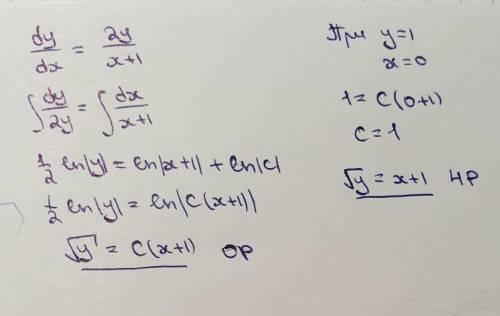 dy/dx = 2y/x+1
∫ dy/2y = ∫ dx/x+1
1/2 ln|y| = ln|x+1| + ln|C|
1/2 ln|y| = ln|C(x+1)|
√y = C(x+1) ОР
При y=1
x=0
1 = C(0+1)
C = 1
√y = x+1 ЧР